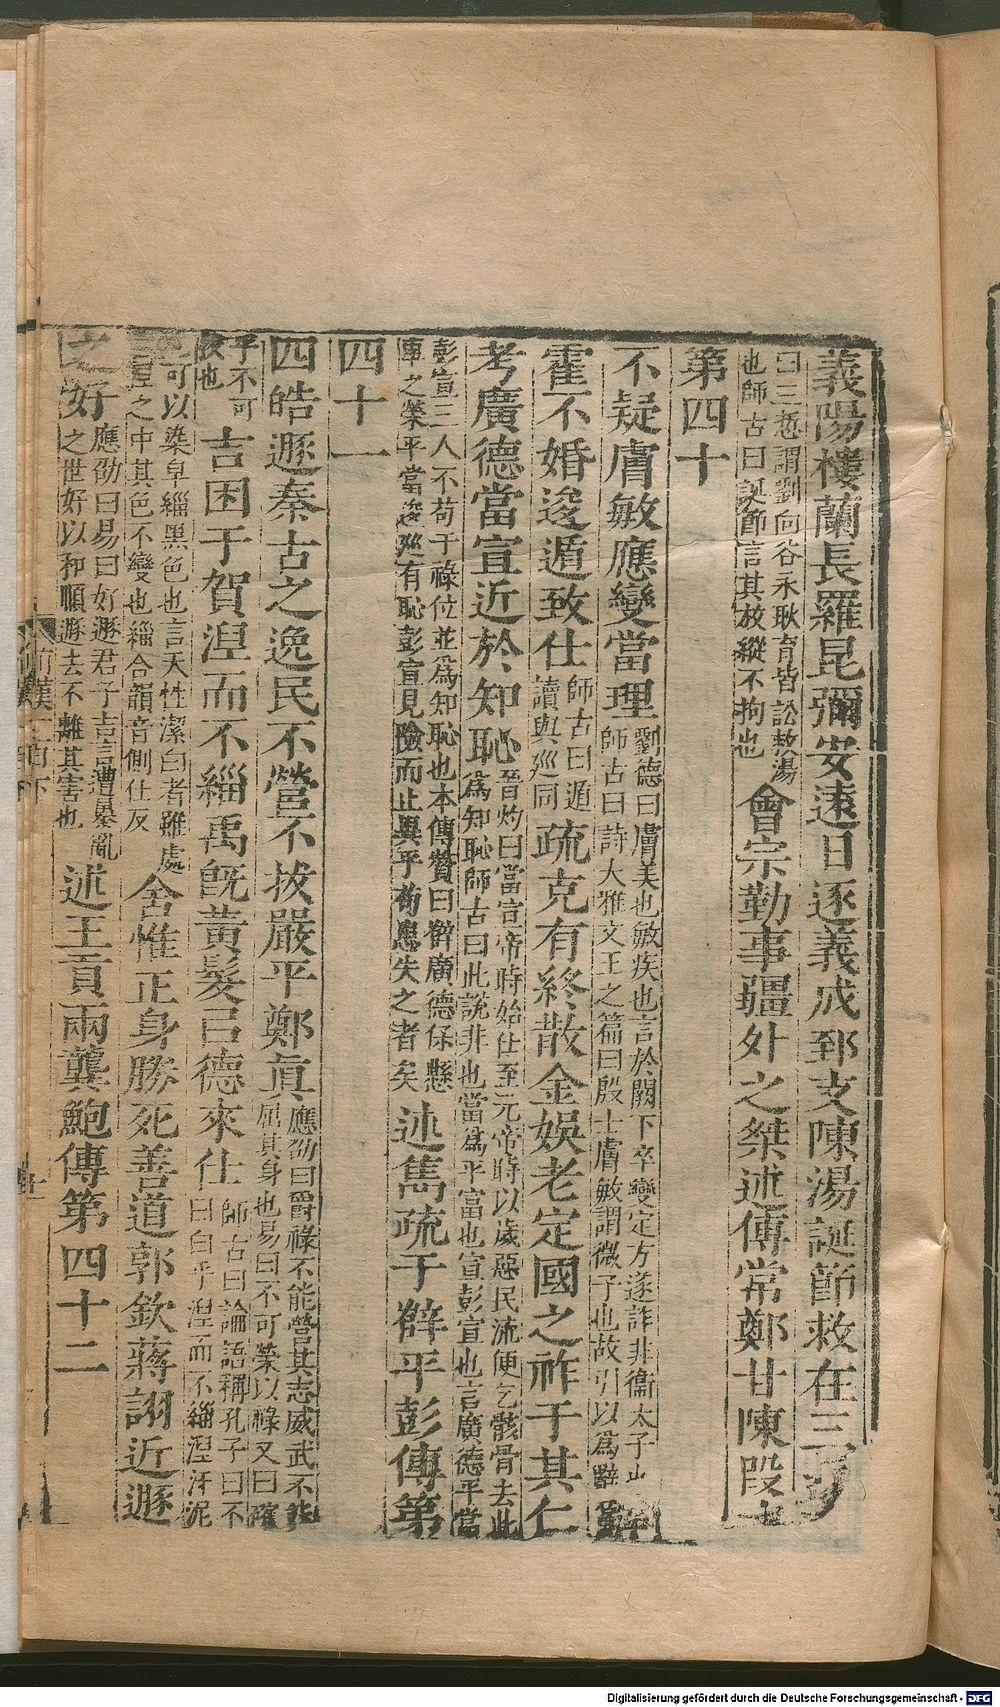 義陽樓蘭長羅昆彌安遠日逐義成郅支陳湯誕節救在三
曰三悊謂劉向谷永耿育皆訟救湯
也師古曰誕節言其放縱不拘也
會宗勤事疆外之桀述傅常鄭甘陳段
第四十
不疑膚敏應變當理
劉德曰膚美也敏疾也言於闕下卒變定方遂詐非衞太子
師古曰詩大雅文王之篇曰殷士膚敏謂微子也故引以爲辭
霍不婚逡遁致仕
師古曰遁
讀與巡同
疏克有終散金娛老定國之祚于其仁
考廣德當宣近於知恥
晉灼曰當宣帝時始仕至元帝時以歲惡民流便乞骸骨去此
爲知恥師古曰此說非也當爲平當也宣彭宣也言廣德平當
彭宣三人不苟于祿位並爲知恥也本傳贊曰薛廣德保懸
車之榮平當逡巡有恥彭宣見險而止異乎苟患失之者矣
述雋疏于薛平彭傳第
四十一
四皓遯秦古之逸民不營不拔嚴平鄭眞
應劭曰爵祿不能營其志威武不能
屈其身也易曰不可榮以祿又曰確
乎不可
拔也
吉困于賀湼而不緇禹旣黃髮已德來仕
師古曰論語稱孔子曰不
曰白乎湼而不緇湼汙泥
可以染皁緇黑色也言天性潔白者雖處
湼之中其色不變也緇合韻音側仕反
舍惟正身勝死善道郭欽蔣詡近遯
之好
應劭曰易曰好遯君子吉言遭暴亂
之世好以和順遯去不離其害也
述王貢兩龔鮑傳第四十二
前漢一百下
Digitalisierung gefördert durch die Deutsche Forschungsgemeinschaft - DFG